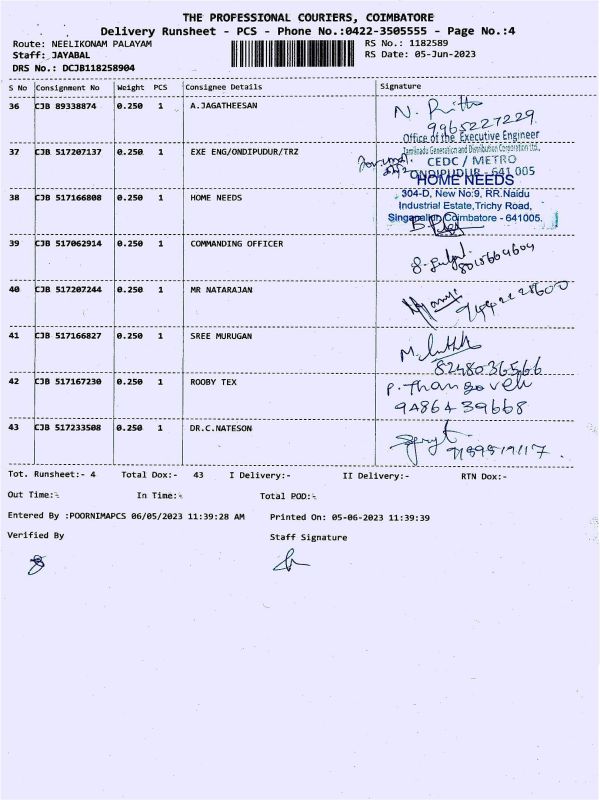 THE PROFESSIONAL COURIERS, COIMBATORE
Delivery Runsheet - PCS - Phone No.:0422-3505555 - Page No.:4
Route: NEELIKONAM PALAYAM RS No.: 1182589
Staff: JAYABAL RS Date: 05-Jun-2023
DRS No.: DCJB118258904
S No Consignment No Weight PCS Consignee Details Signature
36 CJB 89338874 0.250 1 A.JAGATHEESAN
N. Ritto
9965227229
Office of the Executive Engineer
37 CJB 517207137 0.250 1 EXE ENG/ONDIPUDUR/TRZ
Tamilnadu Generation and Distribution Corporation Ltd.,
CEDC / METRO
ONDIPUDUR - 641 005
38 CJB 517166808 0.250 1 HOME NEEDS
HOME NEEDS
304-D, New No:9, RR.Naidu
Industrial Estate,Trichy Road,
Singanallur, Coimbatore - 641005.
39 CJB 517062914 0.250 1 COMMANDING OFFICER
8015664604
40 CJB 517207244 0.250 1 MR NATARAJAN
41 CJB 517166827 0.250 1 SREE MURUGAN
8248036566
42 CJB 517167230 0.250 1 ROOBY TEX
P. Thangavel
9486439668
43 CJB 517233508 0.250 1 DR.C.NATESON
Tot. Runsheet:- 4 Total Dox:- 43 I Delivery:- II Delivery:- RTN Dox:-
Out Time:- In Time:- Total POD:-
Entered By :POORNIMAPCS 06/05/2023 11:39:28 AM Printed On: 05-06-2023 11:39:39
Verified By Staff Signature